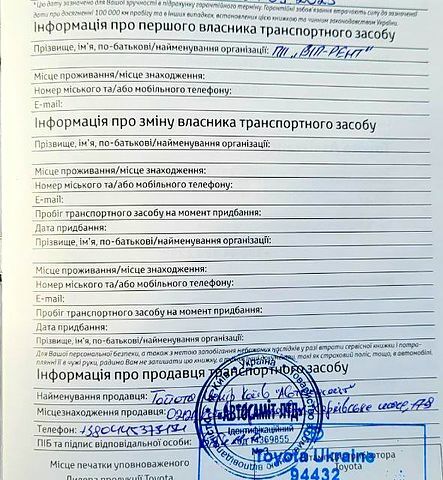 * Цю дату зазначено для Вашої зручності в підрахунку гарантійного терміну. Гарантійні зобов'язання втрачають силу до зазначеної
дати при досягненні 100 000 км пробігу та в інших випадках, встановлених цією книжкою та чинним законодавством України.
Інформація про першого власника транспортного засобу
Прізвище, ім'я, по-батькові/найменування організації: ПП „ВІП-РЕНТ"
Місце проживання/місце знаходження:
Номер міського та/або мобільного телефону:
E-mail:
Інформація про зміну власника транспортного засобу
Прізвище, ім'я, по-батькові/найменування організації:
Місце проживання/місце знаходження:
Номер міського та/або мобільного телефону:
E-mail:
Пробіг транспортного засобу на момент придбання:
Дата придбання:
Прізвище, ім'я, по-батькові/найменування організації:
Місце проживання/місце знаходження:
Номер міського та/або мобільного телефону:
E-mail:
Пробіг транспортного засобу на момент придбання:
Дата придбання:
Прізвище, ім'я, по-батькові/найменування організації:
Для Вашої персональної безпеки, а також з метою запобігання небажаних наслідків у разі втрати сервісної книжки і потра-
плянні її в чужі руки, радимо Вам не залишати цю книжку, а також страховий поліс тощо, в автомобілі.
Інформація про продавця транспортного засобу
Найменування продавця: Тойота Центр Київ „Автосаміт"
Місцезнаходження продавця: Харківське шосе,
Телефон:
ПІБ та підпис відповідальної особи:
Україна
"АВТОСАМІТ ЛТД"
Ідентифікаційний
код 14369855
Місце печатки уповноваженого
Дилера продукції Toyota
Toyota Ukraine
Toyota
94432